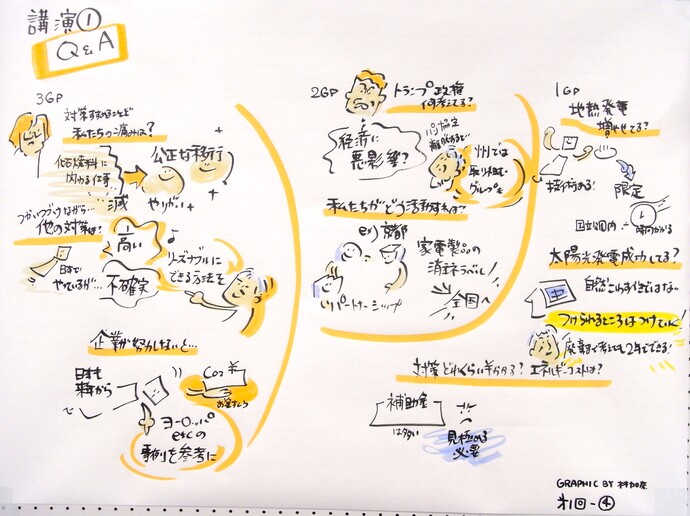 講演①
Q&A
1GP
地熱発電
増やせてる?
技術ある!
限定
国立公園内…
時間かかる
太陽光発電成功してる?
自然こわすべきではない
つけられるところはつけていく!
廃棄まで考えても2年でできる!
2GP
トランプ政権
何考えてる?
経済に
悪影響?
パリ協定
離脱あるも…
州では
取り組む
グループも
私たちがどう活動すれば?
ex) 京都
家電製品の
消エネラベル!
パートナーシップ
全国へ
対策どれくらい¥かかる? エネルギーコストは?
補助金
は多い
見極める
必要
3GP
対策することで
私たちの痛みは?
化石燃料に
関わる仕事
減
公正な移行
やりがい+
つかいつづけながら…
他の対策は?
日本で
やっているが…
①高い
不確実
リーズナブルに
できる方法を
企業が努力しないと…
日本も
来年から
CO2 ¥
ヨーロッパ
etcの
事例を参考に
GRAPHIC BY
第1回-④